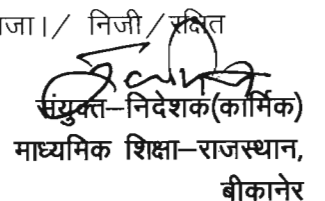 जा।/ निजी/रक्षित
संयुक्त–निदेशक(कार्मिक)
माध्यमिक शिक्षा–राजस्थान,
बीकानेर